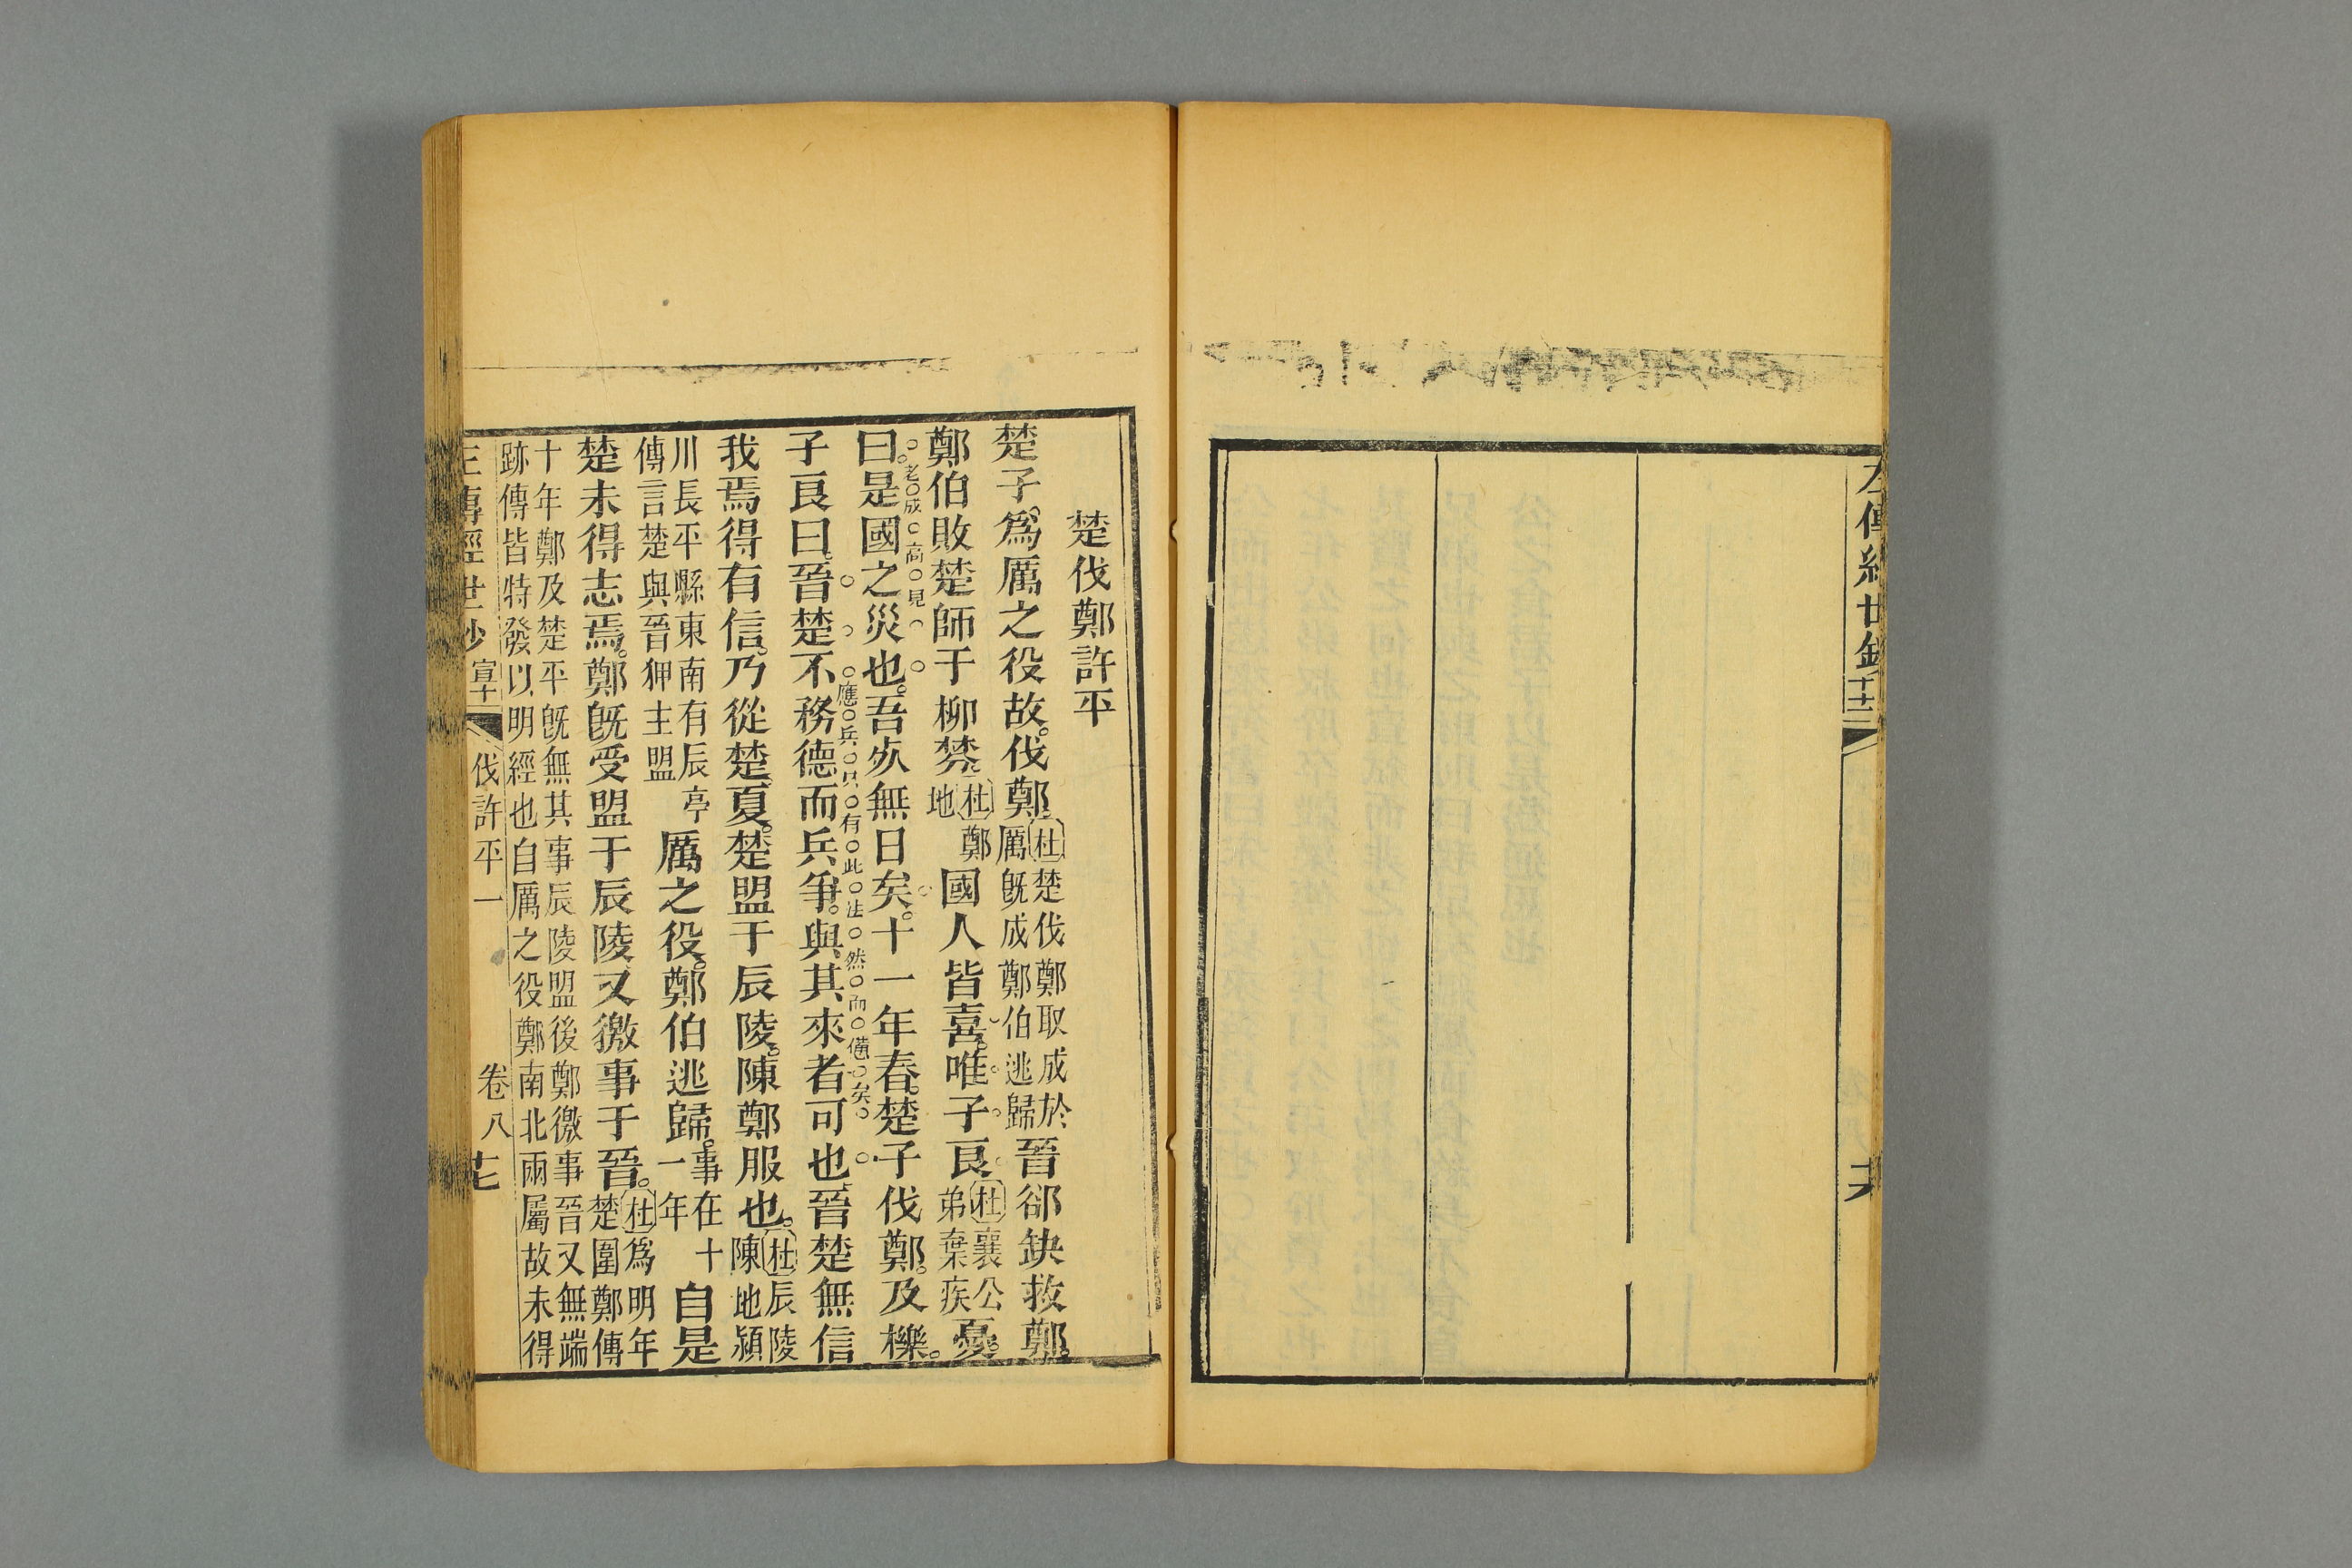 左傳經世鈔
楚伐鄭許平
楚子爲厲之役故伐鄭杜楚伐鄭取成於厲旣成鄭伯逃歸晉郤缺救鄭
鄭伯敗楚師于柳棼杜鄭地國人皆喜唯子良杜襄公弟棄疾憂
曰是國之災也吾死無日矣十一年春楚子伐鄭及櫟
老成高見
子良曰晉楚不務德而兵爭與其來者可也晉楚無信
應兵只有此法然而憊矣
我焉得有信乃從楚夏楚盟于辰陵陳鄭服也杜辰陵陳地潁
川長平縣東南有辰亭傳言楚與晉狎主盟厲之役鄭伯逃歸事在十一年自是
楚未得志焉鄭旣受盟于辰陵又徼事于晉杜爲明年楚圍鄭傳
十年鄭及楚平旣無其事辰陵盟後鄭徼事晉又無端
跡傳皆特發以明經也自厲之役鄭南北兩屬故未得
左傳經世鈔 宣十 伐許平一 卷八